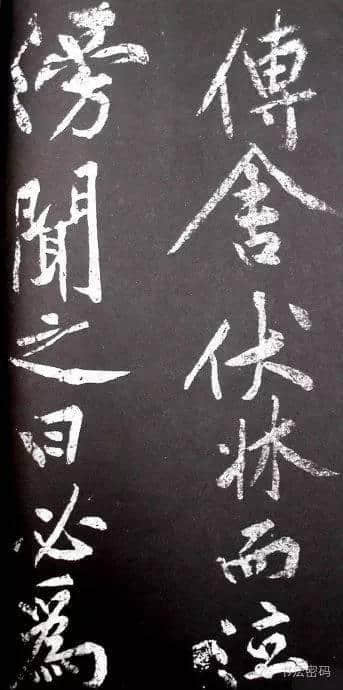 傳舍伏牀而泣
滂聞之曰必爲
书法密码